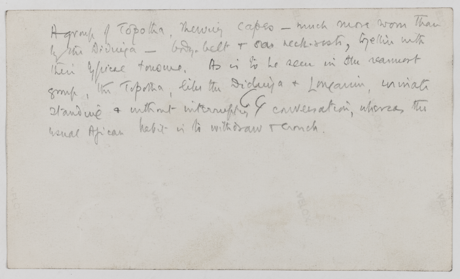 A group of Topotha, showing capes – much more worn than
by the Didinga – body-belt & neck-rests, together with
their typical . As is to be seen in the nearmost
group, the Topotha, like the Didinga & Longarim, urinate
standing & without interrupting conversation, whereas the
usual African habit is to withdraw & crouch.